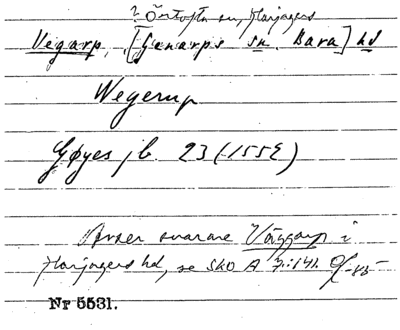 i Örtofta sn, Harjagers
Vegarp, [Genarps sn. Bara] hd
Wegerup
Gøyes jb. 23 (1552)
Avser snarare Väggarp i
Harjagers hd, se SkO A 7:141.
Nr 5531.